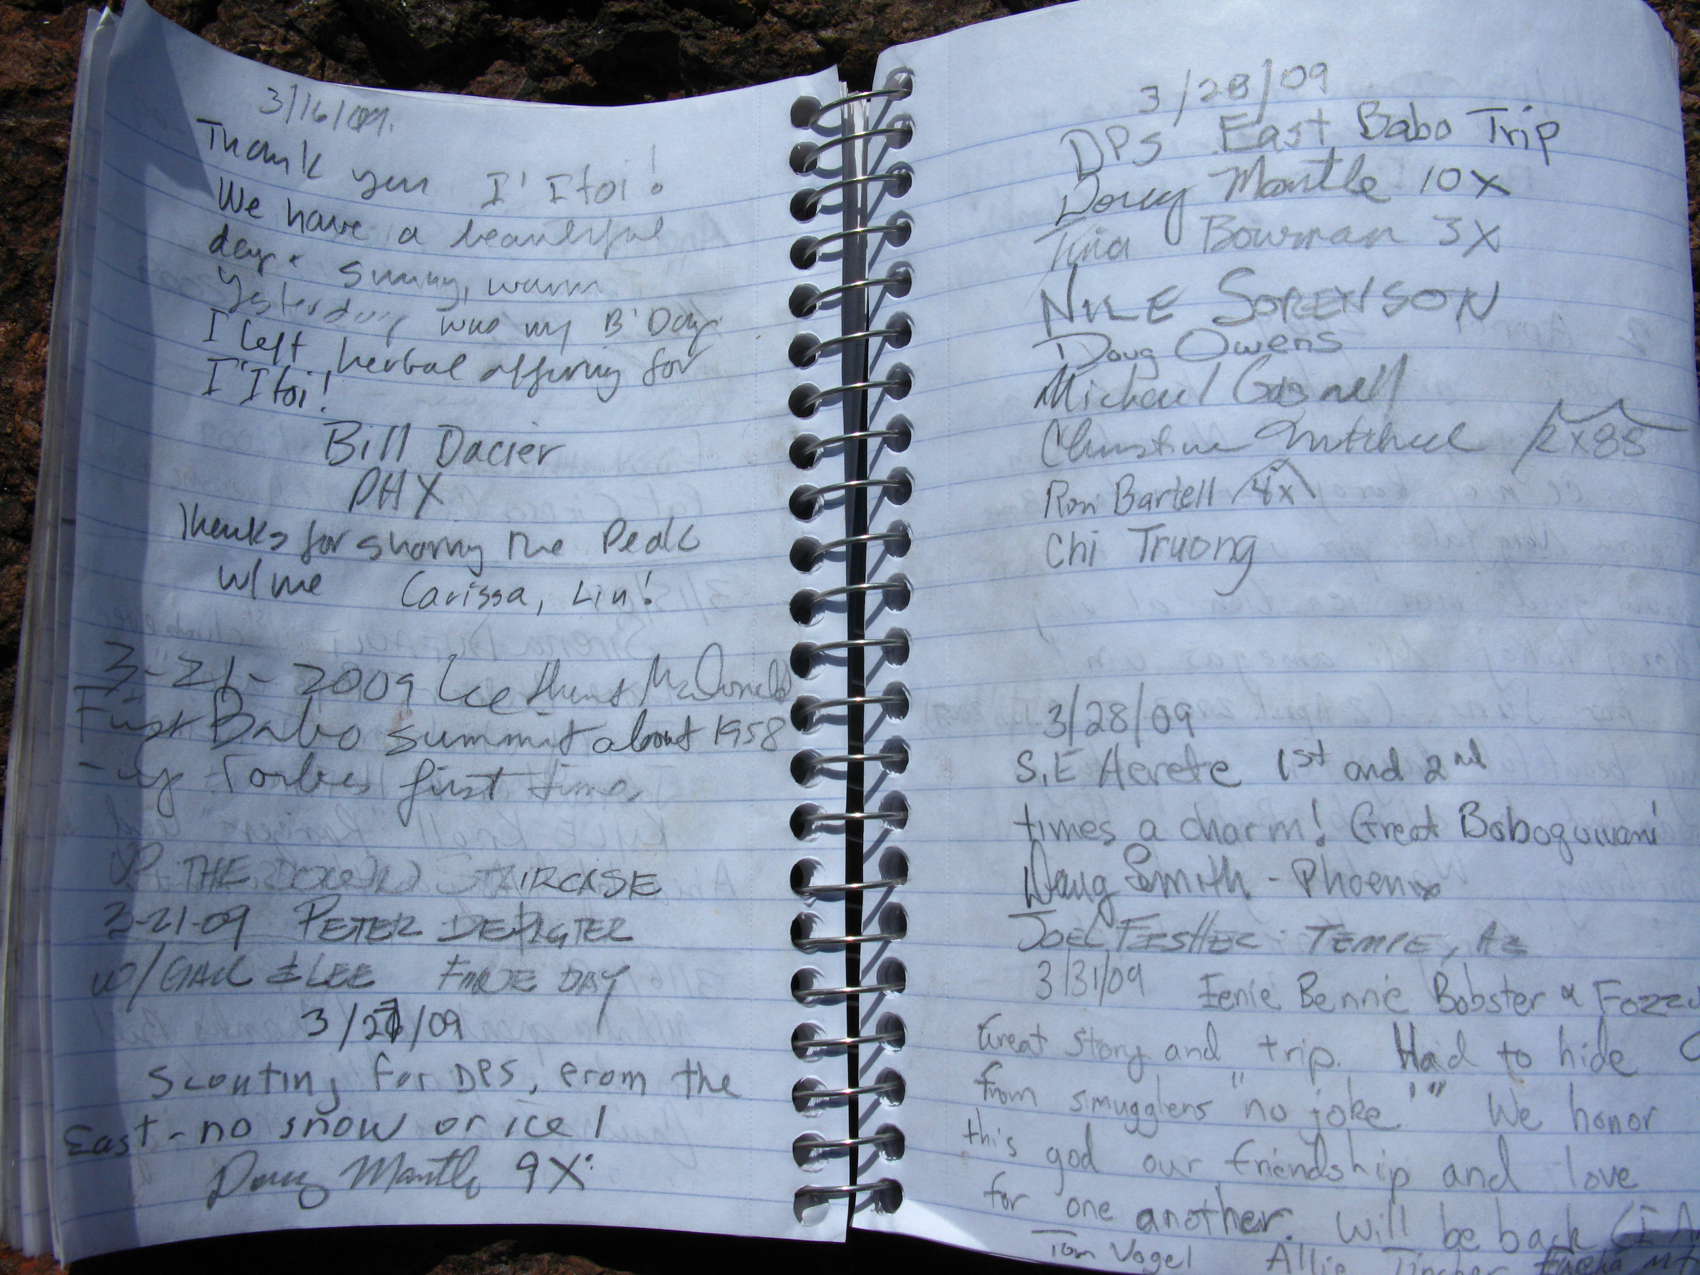 3/16/09.
Thank you I'Itoi!
We have a beautiful
day. Sunny, warm
Yesterday was my B'Day
I left herbal offering for
I'Itoi!
Bill Dacier
PHX
Thanks for sharing the Peak
w/me Carissa, Lin!
3-21-2009 Lee McDonald
First Babo summit about 1958
- first time
UP THE DOWN STAIRCASE
3-21-09 PETER
W/ GAIL & LEE FINE DAY
3/27/09
Scouting for DPS, from the
East - no snow or ice!
Doug Mantle 9X
3/28/09
DPS East Babo Trip
Doug Mantle 10X
Tina Bowman 3X
NILE SORENSON
Doug Owens
Michael Gosnell
Christine Mitchell 2x8S
Ron Bartell 4x
Chi Truong
3/28/09
S,E Aerete 1st and 2nd
times a charm! Great Baboquivari
Doug Smith - Phoenix
JOEL TEMPE, AZ
3/31/09 Eenie Bennie Bobster &
Great story and trip. Had to hide
from smugglers "no joke!" We honor
this god our friendship and love
for one another. Will be back
Tom Vogel Allie